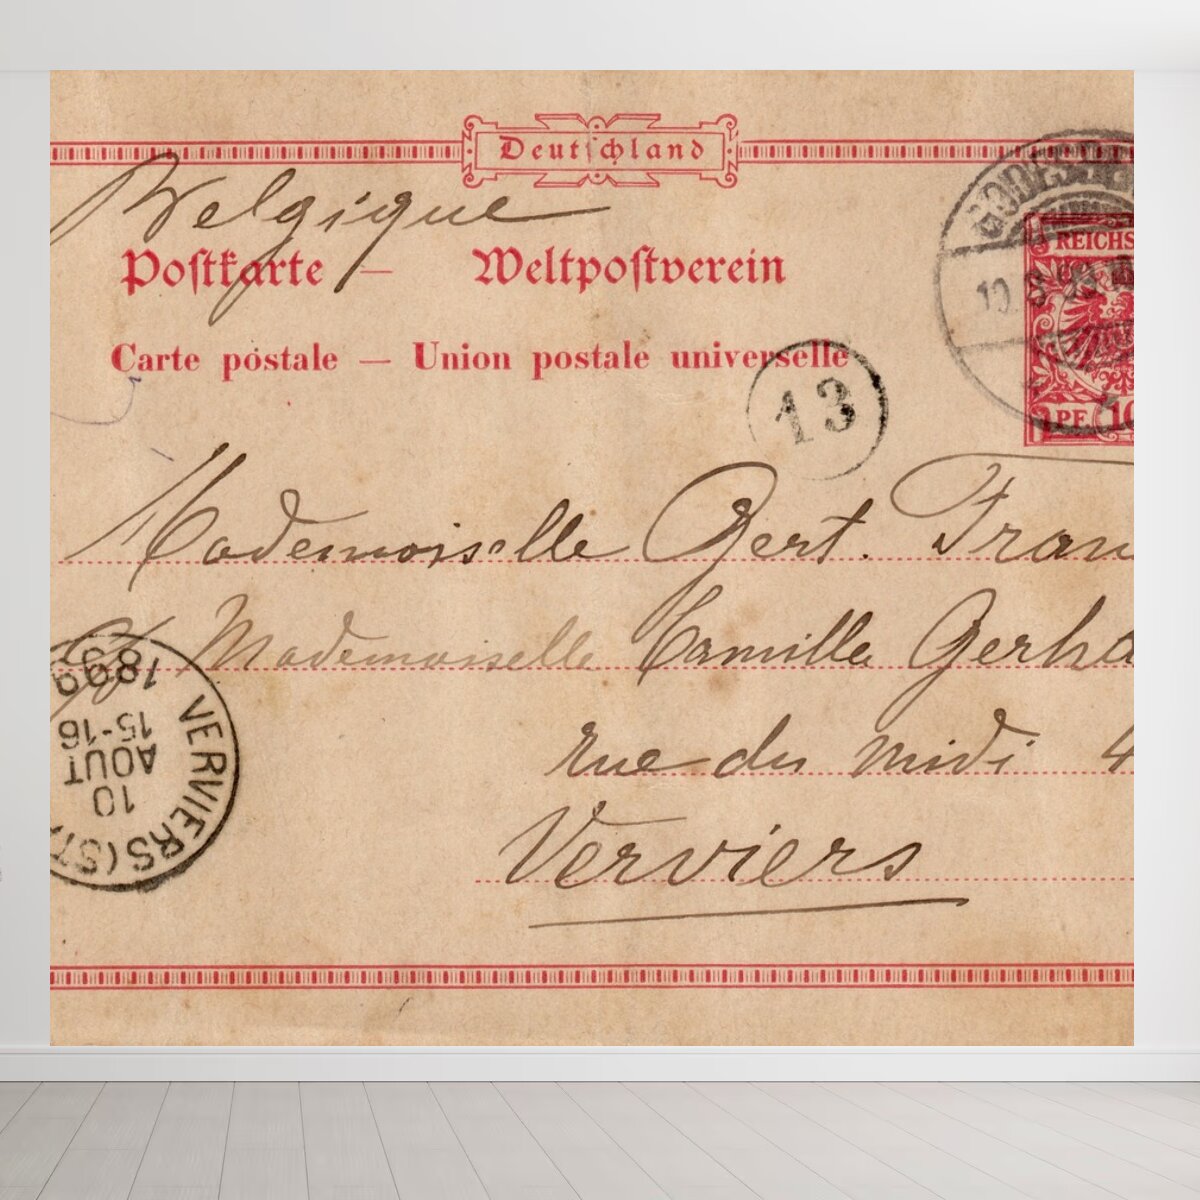 Deutschland
Belgique
Postkarte — Weltpostverein
Carte postale — Union postale universelle
REICHS
PF. 10
13
Mademoiselle Gert. Fran
Mademoiselle Camilla Gerha
rue du midi 4
Verviers
VERVIERS (ST
10
AOUT
15-16
1899